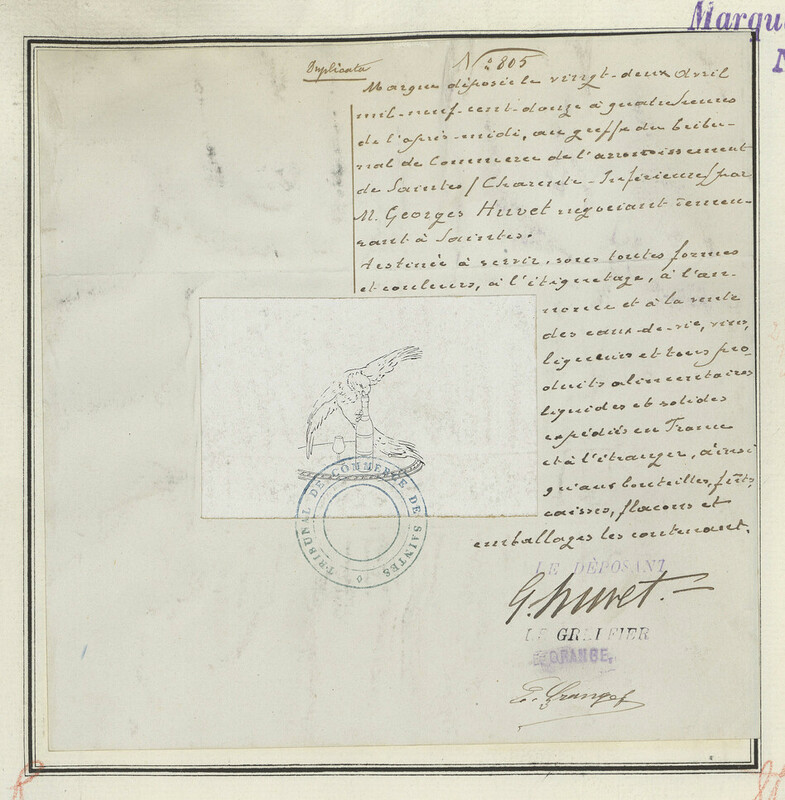 Marqu
N
Duplicata
N° 805
Marque déposée le vingt-deux Avril
mil-neuf-cent-douze à quatre heures
de l'après-midi, au greffe du tribu-
nal de Commerce de l'arrondissement
de Saintes (Charente-Inférieure) par
M. Georges Huvet négociant demeu-
rant à Saintes.
Destinée à servir, sous toutes formes
et couleurs, à l'étiquetage, à l'an-
nonce et à la vente
des eaux-de-vie, vins,
liqueurs et tous pro-
duits alimentaires
liquides et solides
expédiés en France
et à l'étranger, ainsi
qu'aux bouteilles, fûts,
caisses, flacons et
emballages les contenant.
TRIBUNAL DE COMMERCE DE SAINTES
LE DÉPOSANT
G. Huvet.
LE GREFFIER
E. GRANGE.
E. Grange